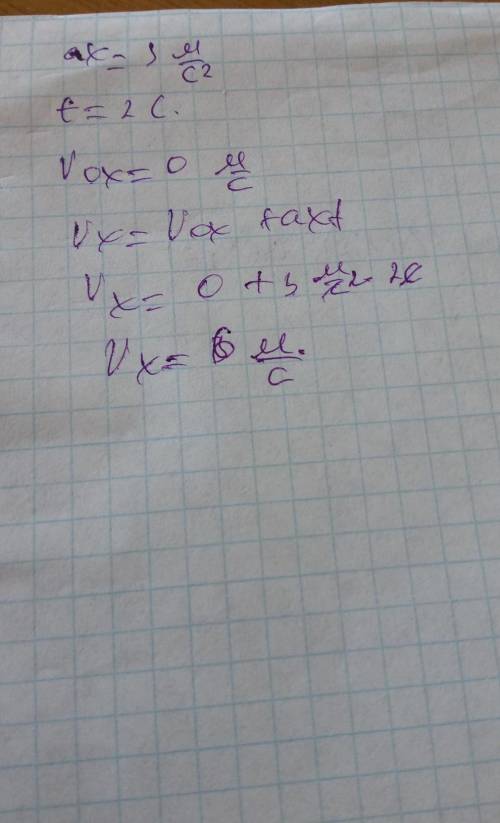 ax = 3 м/с2
t = 2 с.
Vox = 0 м/с
Vx = Vox + axt
Vx = 0 + 3 м/с2 2с
Vx = 6 м/с.